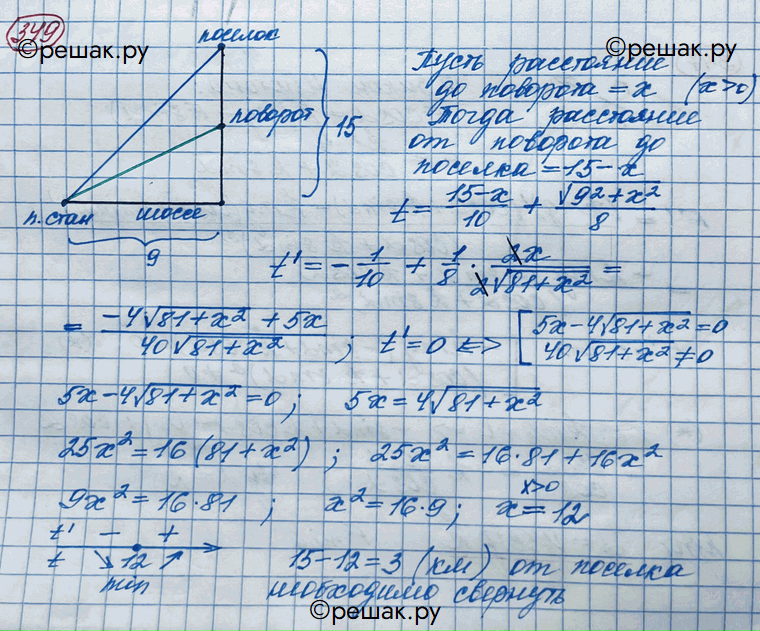 349
©решак.ру
©решак.ру
поселок
поворот
15
п.стан шоссе
9
Пусть расстояние
до поворота = x (x>0)
Тогда расстояние
от поворота до
поселка = 15-x
t = \frac{15-x}{10} + \frac{\sqrt{9^2+x^2}}{8}
t' = -\frac{1}{10} + \frac{1}{8} \cdot \frac{2x}{2\sqrt{81+x^2}} =
= \frac{-4\sqrt{81+x^2}+5x}{40\sqrt{81+x^2}} ; t'=0 <=> [ 5x-4\sqrt{81+x^2}=0
40\sqrt{81+x^2}≠0
5x-4\sqrt{81+x^2}=0 ; 5x=4\sqrt{81+x^2}
25x^2=16(81+x^2) ; 25x^2=16·81+16x^2
9x^2=16·81 ; x^2=16·9 ; x = 12
x>0
t' - +
t ↘ 12 ↗
min
15-12=3 (км) от поселка
необходимо свернуть
©решак.ру